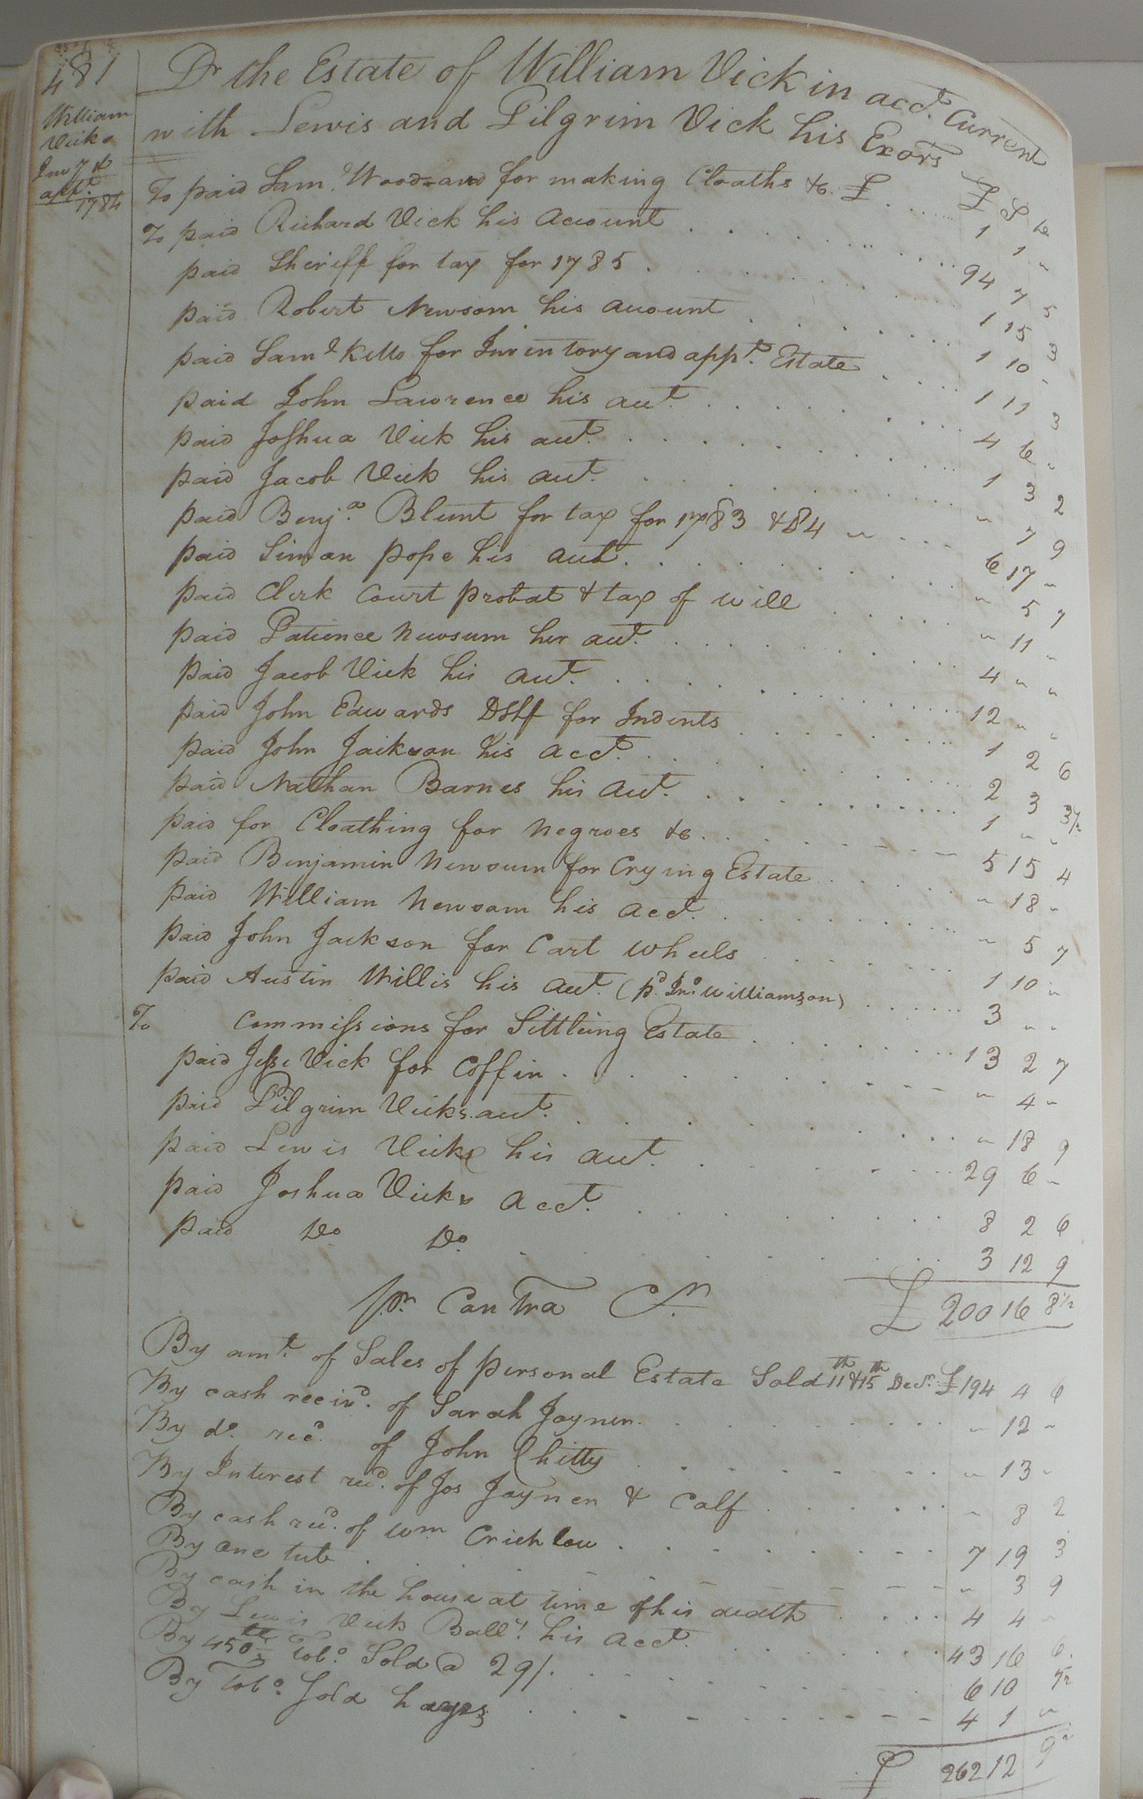 481
William
Vicks
Invy &
appt
1784
Dr the Estate of William Vick in acct. Current
with Lewis and Pilgrim Vick his Exors
£ S d
To paid Saml. Woodard for making Cloaths &c. £ 1 1 "
To paid Richard Vick his account 94 7 5
paid Sheriff for tax for 1785 1 15 3
paid Robert Newsom his account 1 10 "
paid Saml Kello for Inventory and appt. Estate 1 11 3
paid John Lawrence his acct. 4 6 "
paid Joshua Vick his acct. 1 3 2
paid Jacob Vick his acct. " 7 9
paid Benja. Blunt for tax for 1783 & 84 6 17 "
paid Simon pope his acct. " 5 7
paid Clerk Court probat & tax of will " 11 "
paid Patience Newsum her acct. 4 " "
paid Jacob Vick his acct. 12 " "
paid John Edwards DShf for Indents 1 2 6
paid John Jaikson his acct. 2 3 3½
paid Nathan Barnes his acct. 1 " "
paid for Cloathing for Negroes &c. 5 15 4
paid Benjamin Newsum for Crying Estate " 18 "
paid William Newsom his acct. " 5 7
paid John Jackson for Cart wheels 1 10 "
paid Austin Willis his acct. (pd. Jno. Williamson) 3 " "
To Commissions for Settling Estate 13 2 7
paid Jesse Vick for Coffin " 4 "
paid Pilgrim Vicks acct. " 18 9
paid Lewis Vicks his acct. 29 6 "
paid Joshua Vicks acct. 8 2 6
paid Do Do 3 12 9
£ 200 16 8½
pr Contra Cr.
By amt. of Sales of personal Estate Sold 11th & 15th Decr. £ 194 4 6
By cash receivd. of Sarah Joyner " 12 "
By do. recd. of John Chitty " 13 "
By Interest recd. of Jos Joyner & Calf " 8 2
By cash recd. of Wm Crichlow 7 19 3
By one tub " 3 9
By cash in the house at time of his death 4 4 "
By Lewis Vick Ball. his acct. 43 16 6
By 450 Tobo. Sold @ 29/. 6 10
By Tobo. Sold hayes 4 1 "
£ 262 12 9